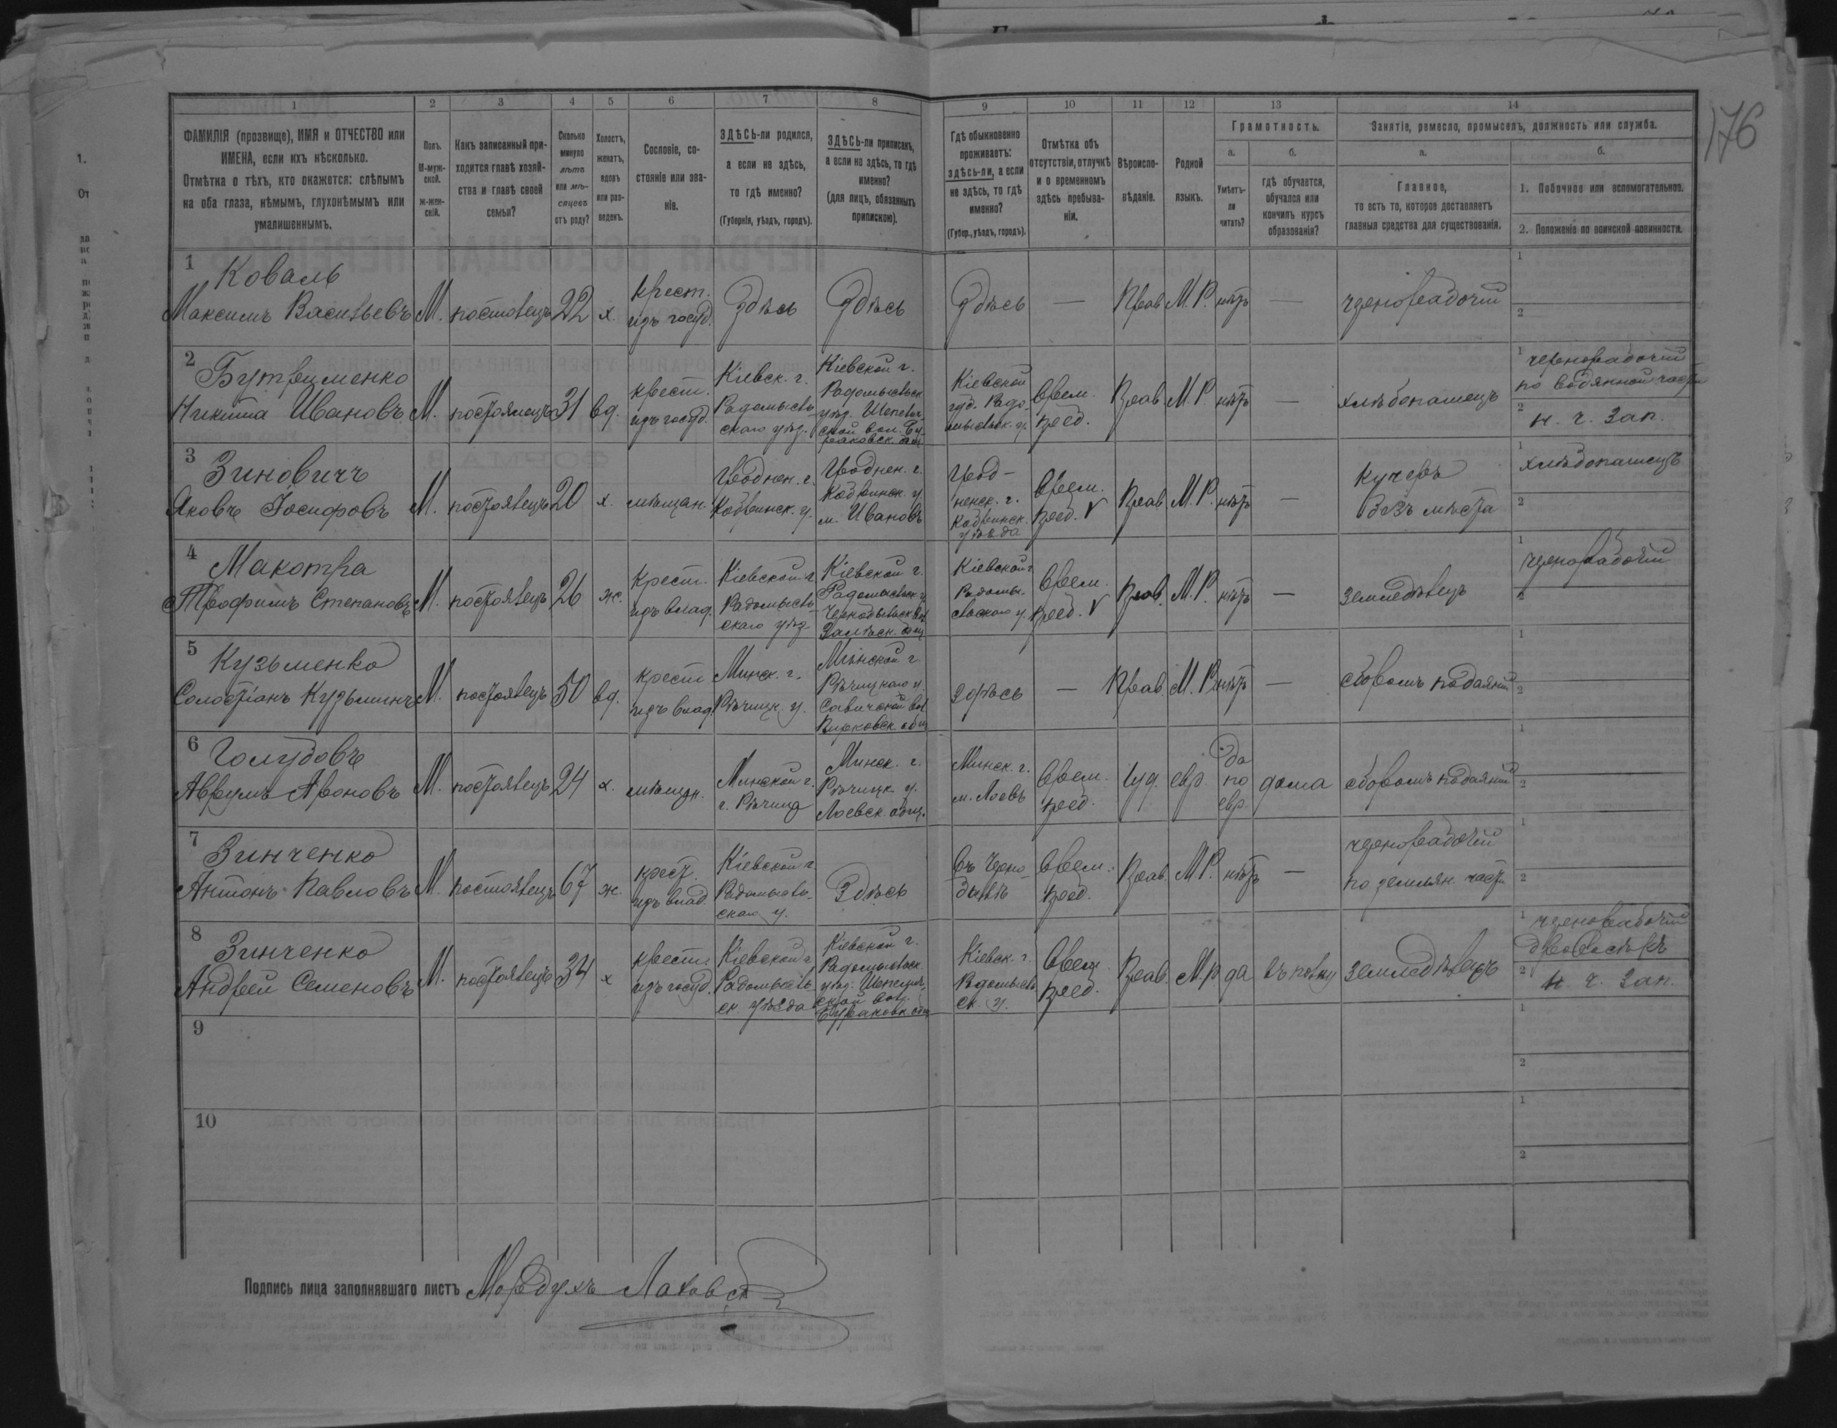 176
1 2 3 4 5 6 7 8 9 10 11 12 13 14
ФАМИЛІЯ (прозвище), ИМЯ и ОТЧЕСТВО или
ИМЕНА, если ихъ нѣсколько.
Отмѣтка о тѣхъ, кто окажется: слѣпымъ
на оба глаза, нѣмымъ, глухонѣмымъ или
умалишеннымъ.
Полъ.
М-муж-
ской.
ж-жен-
скій.
Какъ записанный при-
ходится главѣ хозяй-
ства и главѣ своей
семьи?
Сколько
минуло
лѣтъ
или мѣ-
сяцевъ
отъ роду?
Холостъ,
женатъ,
вдовъ
или раз-
веденъ.
Сословіе, со-
стояніе или зва-
ніе.
ЗДѢСЬ-ли родился,
а если не здѣсь,
то гдѣ именно?
(Губернія, уѣздъ, городъ).
ЗДѢСЬ-ли приписанъ,
а если не здѣсь, то гдѣ
именно?
(для лицъ, обязанныхъ
припискою).
Гдѣ обыкновенно
проживаетъ:
здѣсь-ли, а если
не здѣсь, то гдѣ
именно?
(Губер., уѣздъ, городъ).
Отмѣтка объ
отсутствіи, отлучкѣ
и о временномъ
здѣсь пребыва-
ніи.
Вѣроиспо-
вѣданіе.
Родной
языкъ.
Грамотность.
а.
Умѣетъ-
ли
читать?
б.
гдѣ обучается,
обучался или
кончилъ курсъ
образованія?
Занятіе, ремесло, промыселъ, должность или служба.
а.
Главное,
то есть то, которое доставляетъ
главныя средства для существованія.
б.
1. Побочное или вспомогательное.
2. Положеніе по воинской повинности.
1
Коваль
Максимъ Васильевъ М. постоялецъ 22 х. крест.
изъ госуд. Здѣсь Здѣсь Здѣсь — Прав М.Р. нѣтъ — чернорабочій
2
Бутрименко
Никита Ивановъ М. постоялецъ 31 вд. крест.
изъ госуд.
Кіевск. г.
Радомысль-
скаго уѣз.
Кіевской г.
Радомысльск
уѣз.
Кіевской
губ. Радо-
мысльск. у.
Врем.
преб. Прав М.Р. нѣтъ — хлѣбопашецъ
чернорабочій
по водянной части
н. ч. зап.
3
Зиновичъ
Яковъ Іосифовъ М. постоялецъ 20 х. мѣщан.
Гродненск. г.
Кобринск. у.
Гроднен. г.
Кобринск. у.
м. Ивановъ
Грод-
ненск. г.
Кобринск.
уѣзда
Врем.
преб. V Прав М.Р. нѣтъ —
Кучеръ
безъ мѣста
хлѣбопашецъ
4
Макотра
Трофимъ Степановъ М. постоялецъ 26 ж. Крест.
изъ влад.
Кіевской г.
Радомысль-
скаго уѣз.
Кіевской г.
Радомысльск. у.
Чернобыльск. вол.
Залѣсск. общ.
Кіевской г.
Радомы-
сльскаго у.
Врем.
преб. V Прав. М.Р. нѣтъ — земледѣлецъ
чернорабочій
5
Кузьменко
М. постоялецъ 50 вд. крест
изъ влад.
Минск. г.
Рѣчицк. у.
Минской г
Рѣчицкаго у.
Савичской вол
здѣсь — Прав М.Р. нѣтъ — сборомъ подаяній
6
Голубовъ
Аврумъ Ароновъ М. постоялецъ 24 х. мѣщан.
Минской г.
г. Рѣчица
Минск. г.
Рѣчицк. у.
Лоевск общ.
Минск. г.
м. Лоевъ
Врем.
преб. іуд. евр. да
по
евр. дома сборомъ подаяній
7
Зинченко
Антонъ Павловъ М. постоялецъ 67 ж. крест.
изъ влад.
Кіевской г.
Радомысль-
скаго у. Здѣсь
въ Черно-
былѣ
Врем.
преб. Прав М.Р. нѣтъ —
чернорабочій
по землян. части
8
Зинченко
Андрей Семеновъ М. постоялецъ 34 х крест
изъ госуд.
Кіевской г
Радомысль
ск. уѣзда
Кіевской г.
Радомысльск
уѣз.
Кіевск. г.
Радомысль
ск у.
Врем
преб. Прав. М.Р да въ полку земледѣлецъ
чернорабочій
н. ч. зап.
9
10
Подпись лица заполнявшаго листъ Мордухъ